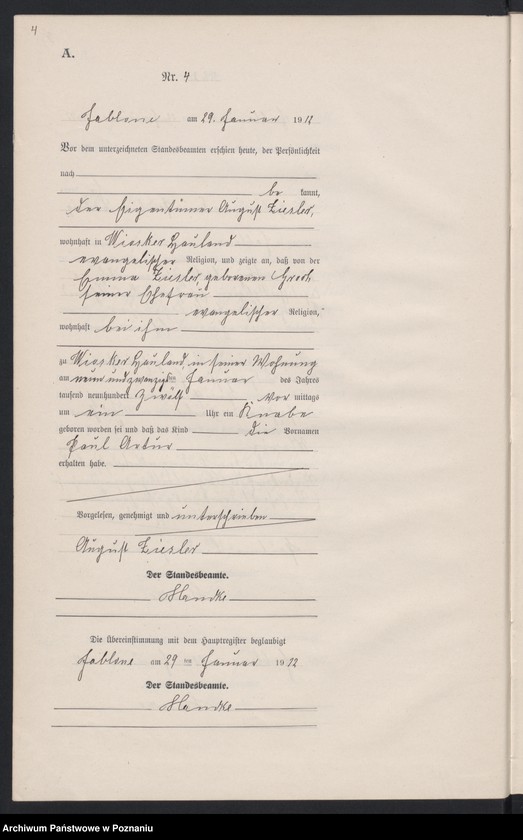 4
A.
Nr. 4
Jablone am 29. Januar 1912
Vor dem unterzeichneten Standesbeamten erschien heute, der Persönlichkeit
nach
be kannt,
der Eigentümer August Ziesler,
wohnhaft in Wiosker Hauland
evangelischer Religion, und zeigte an, daß von der
Emma Ziesler geborenen Grosch
seiner Ehefrau
evangelischer Religion,
wohnhaft bei ihm
zu Wiosker Hauland, in seiner Wohnung
am neun und zwanzigsten Januar des Jahres
tausend neunhundert zwölf vor mittags
um ein Uhr ein Knabe
geboren worden sei und daß das Kind die Vornamen
Paul Artur
erhalten habe.
Vorgelesen, genehmigt und unterschrieben
August Ziesler
Der Standesbeamte.
Handke
Die Übereinstimmung mit dem Hauptregister beglaubigt
Jablone am 29 ten Januar 1912
Der Standesbeamte.
Handke
Archiwum Państwowe w Poznaniu